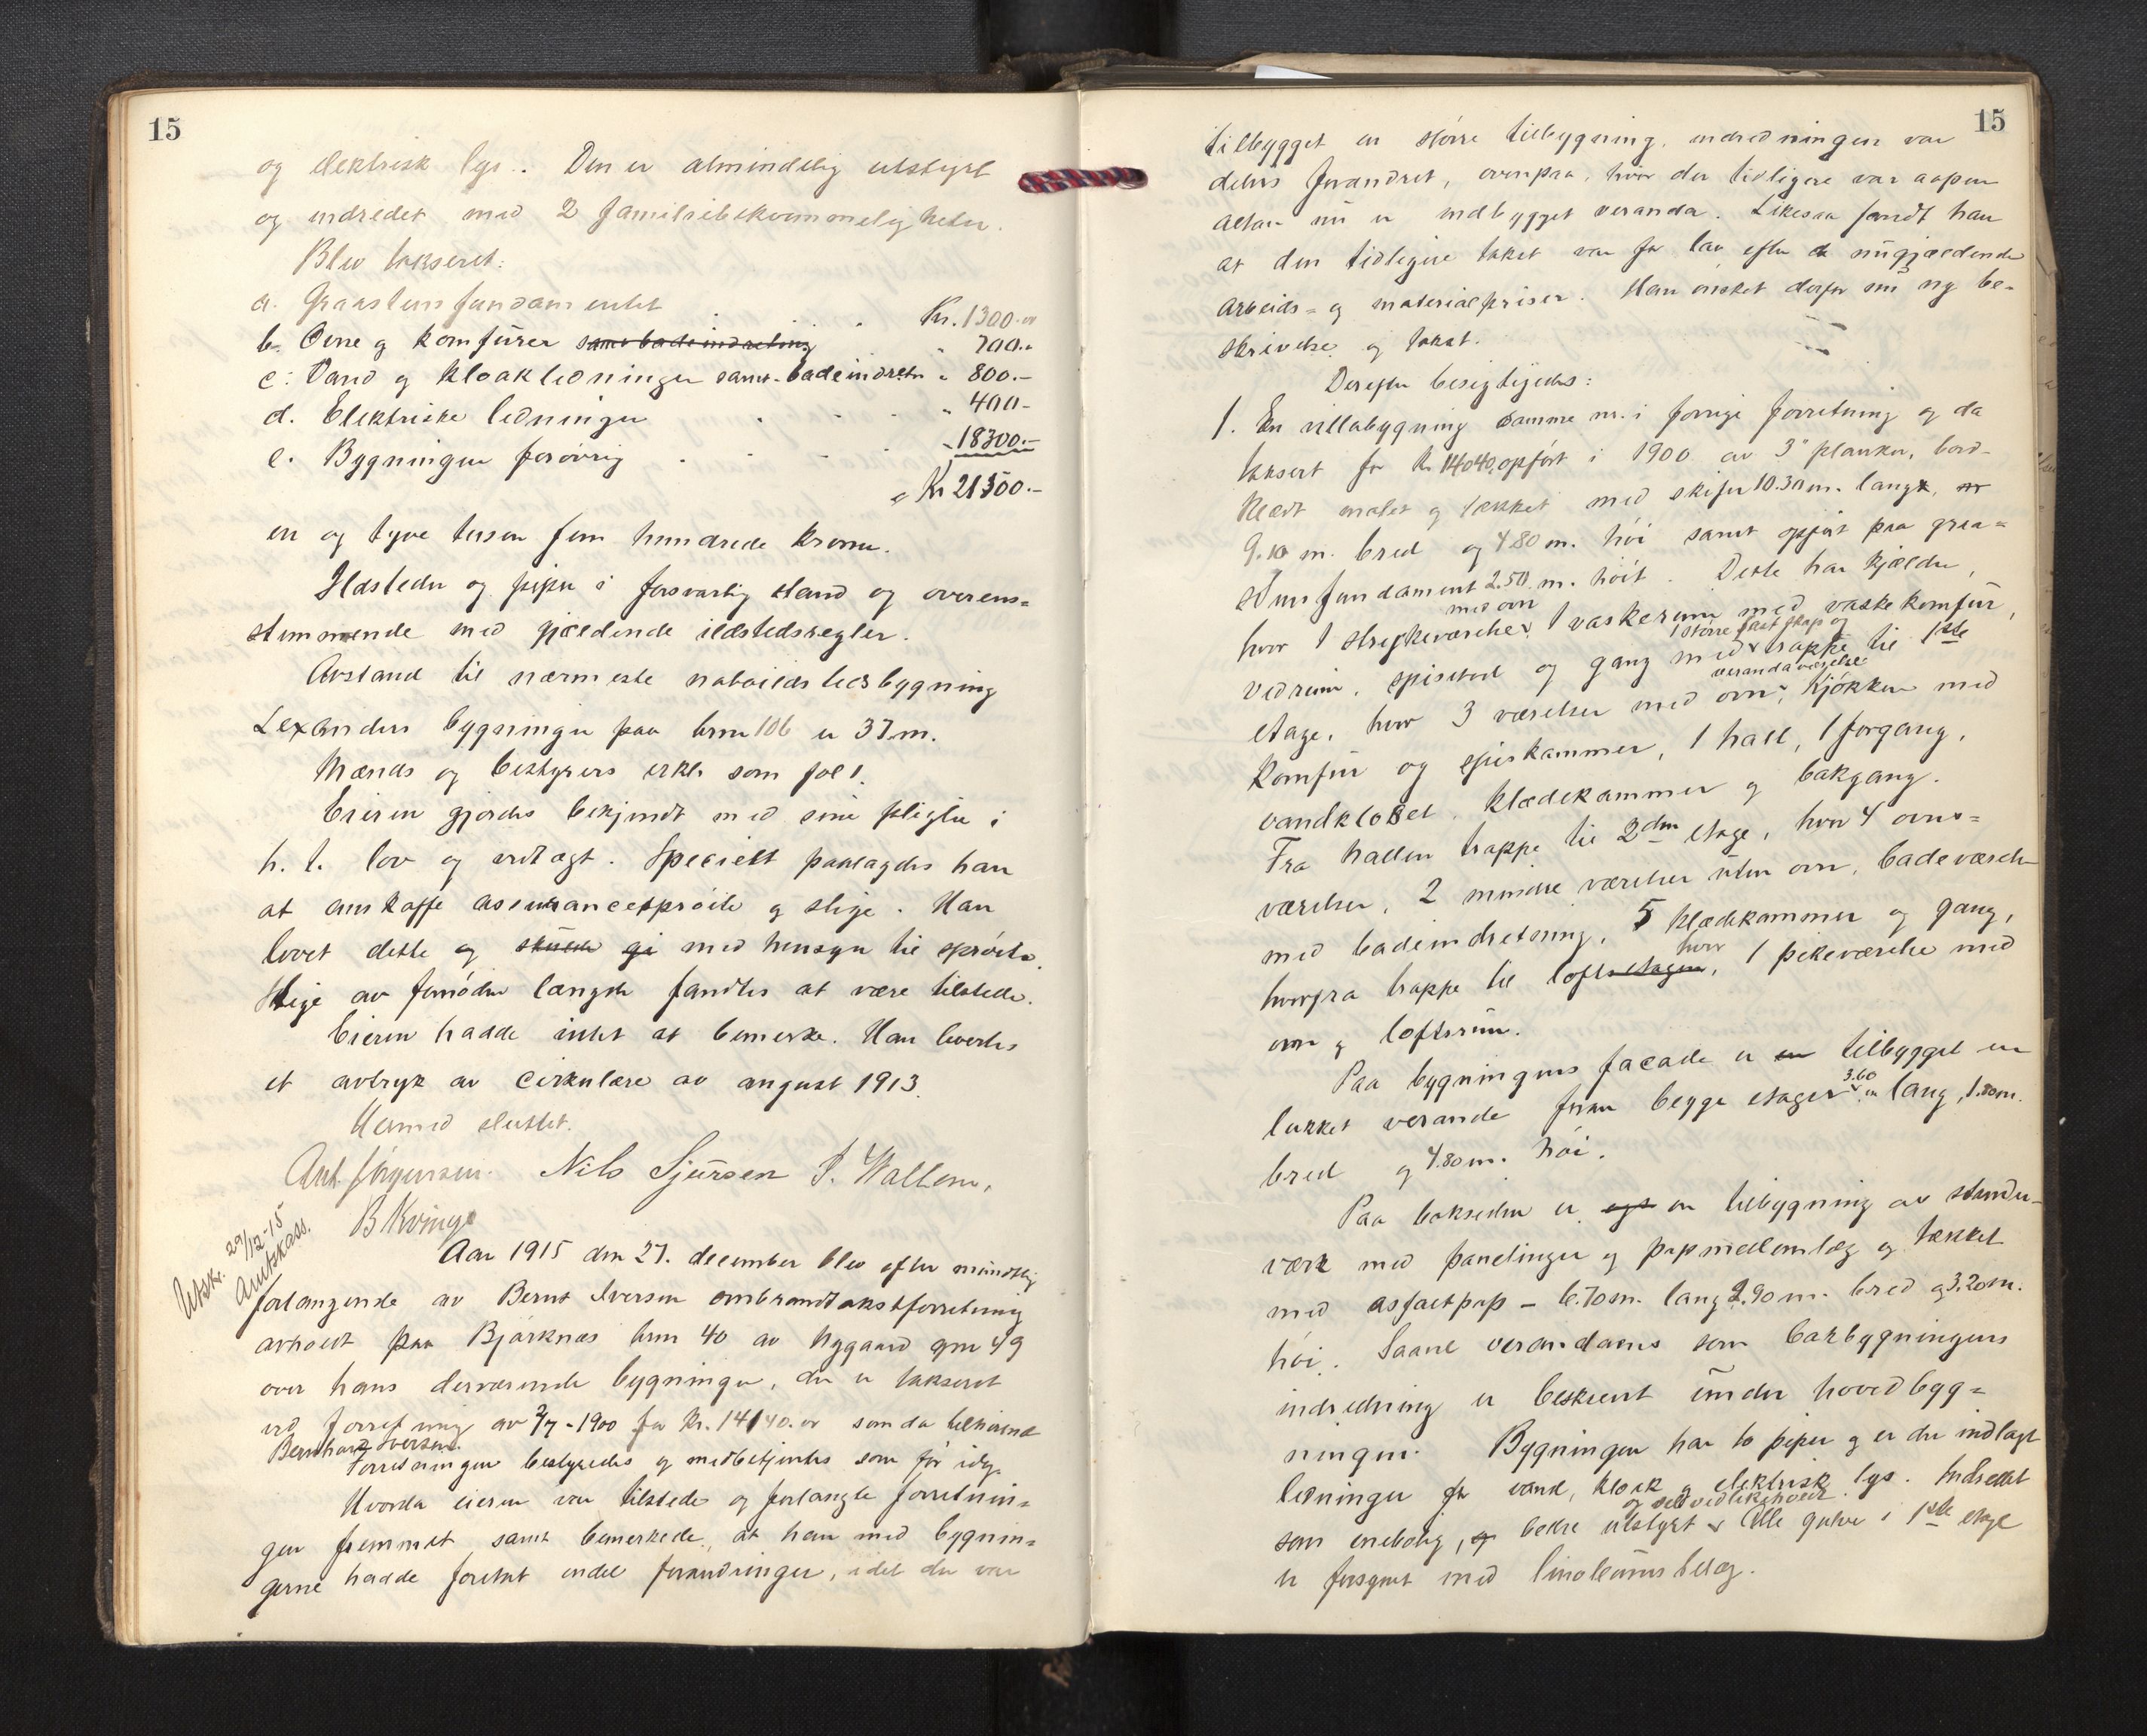 15
og elektrisk lys. Den er almindelig utstyrt
og indredet med 2 familiebekvemmeligheter.
Blev takseret:
a. Graastensfundamentet Kr. 1300.-
b. Ovne og komfürer samt badeindretning " 700.-
c. Vand og kloakledninger samt badeindretn " 800.-
d. Elektriske ledninger " 400-
e. Bygningen forøvrig " 18300.-
Kr 21500.-
en og tyve tusen fem hundrede kroner.
Ildsteder og piper i forsvarlig stand og overens=
stemmende med gjældende ildstedsregler.
Avstand til nærmeste naboildstedsbygning
Lexanders bygninger paa brnr 106 er 37 m.
Mænds og bestyrers erkl. som fol 1.
Eieren gjordes bekjendt med sine pligter i
h. t. lov og vedtægt. Specielt paalagdes han
at anskaffe assurancesprøite og stige. Han
lovet dette og med hensyn til sprøite.
Stige av fornøden længde fandtes at være tilstede.
Eieren hadde intet at bemerke. Han leverdes
et avtryk av cirkulære av august 1913.
Hermed sluttet.
Ant Jørgensen. Nils Sjursen P. Hallem,
B Kvinge
Utskr. 29/12-15
Amtskass.
Aar 1915 den 27. december blev efter mündtlig
forlangende av Bernt Iversen ombrandtakstforretning
avholdt paa Bjørknæs brnr 40 av Nygaard gnr 49
over hans derværende bygninger, der er takseret
ved forretning av 2/7-1900 for Kr. 14140.- som da tilhørende
Bernhard Iversen.
Forretningen bestyredes og medbetjentes som før idag.
Hvorda eieren var tilstede og forlangte forretnin=
gen fremmet samt bemerkede, at han med bygnin=
gerne hadde foretat endel forandringer, idet der var
15
tilbygget en større tilbygning, indredningen var
delvis forandret, ovenpaa, hvor der tidligere var aapen
altan nü er indbygget veranda. Likesaa fandt han
at den tidligere takst var for lav efter nügjældende
arbeids- og materialpriser. Han ønsket derfor nü ny be=
skrivelse og takst.
Derefter besigtigedes:
1. En villabygning samme nr. i forrige forretning og da
taksert for Kr 14040, opført i 1900 av 3" planker, bord-
klædt malet og tækket med skifer 10.30 m. lang,
9.10 m. bred og 4.80 m. høi samt opført paa graa=
stensfundament 2.50 m. høit. Dette har kjælder,
med ovn
hvor 1 strykeværelse, 1 vaskerum med vaskekomfür,
1 større fast skap og
vedrüm, spisebod og gang med trappe til 1ste
verandaværelse
etage, hvor 3 værelser med ovn, kjøkken med
komfür og spiskammer, 1 hall, 1 forgang,
vandkloset, klædekammer og bakgang.
Fra hallen trappe til 2den etage, hvor 4 ovns=
værelser, 2 mindre værelser uten ovn, badeværelse
med badeindretning, 5 klædekammer og gang,
hvor
hvorfra trappe til loftsetagen, 1 pikeværelse med
ovn og loftsrüm.
Paa bygningens facade er en tilbygget en
3.60
lukket veranda foran begge etager m lang, 1.80 m.
bred og 4.80 m. høi.
Paa baksiden er en tilbygning av stender-
verk med panelinger og papmellemlæg og tækket
med asfaltpap - 6.70 m. lang 2.90 m. bred og 3.20 m.
høi. Saavel verandaens som bakbygningens
indredning er beskrevet ünder hovedbyg=
ningen. Bygningen har to piper og er der indlagt
ledninger for vand, kloak og elektrisk lys. Indredet
og vel vedlikeholdt
som enebolig, og bedre utstyrt. Alle gulve i 1ste etage
er forsynet med linoleümsbelæg.